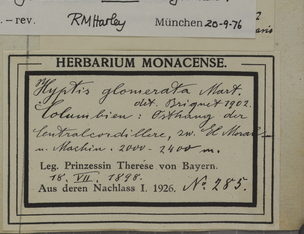 – rev. RMHarley München 20-9-76
HERBARIUM MONACENSE.
Hyptis glomerata Mart.
det. Briquet 1902.
Columbien: Osthang der
Centralcordillere, zw. El Moral
u. Machin. 2000–2400 m.
Leg. Prinzessin Therese von Bayern.
18. VII. 1898.
Aus deren Nachlass I. 1926. No 285.